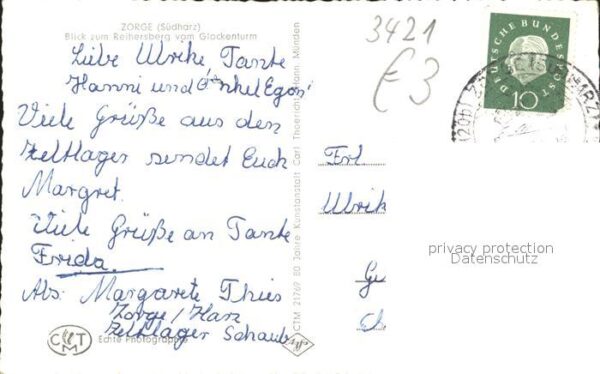 ZORGE (Südharz)
Blick zum Reihersberg vom Glockenturm
Liebe Ulrike, Tante
Hanni und Onkel Egon!
Viele Grüße aus den
Zeltlager sendet Euch
Margret.
Viele Grüße an Tante
Frida.
Abs: Margarete Thies
Zorge/Harz
Zeltlager Schaub
CTM
Echte Photographie
CTM 21769 80 Jahre Kunstanstalt Carl Thoericht, Hann. Münden
3421
€3
DEUTSCHE BUNDESPOST
10
(20b)
HARZ
Frl
Ulrik
privacy protection
Datenschutz